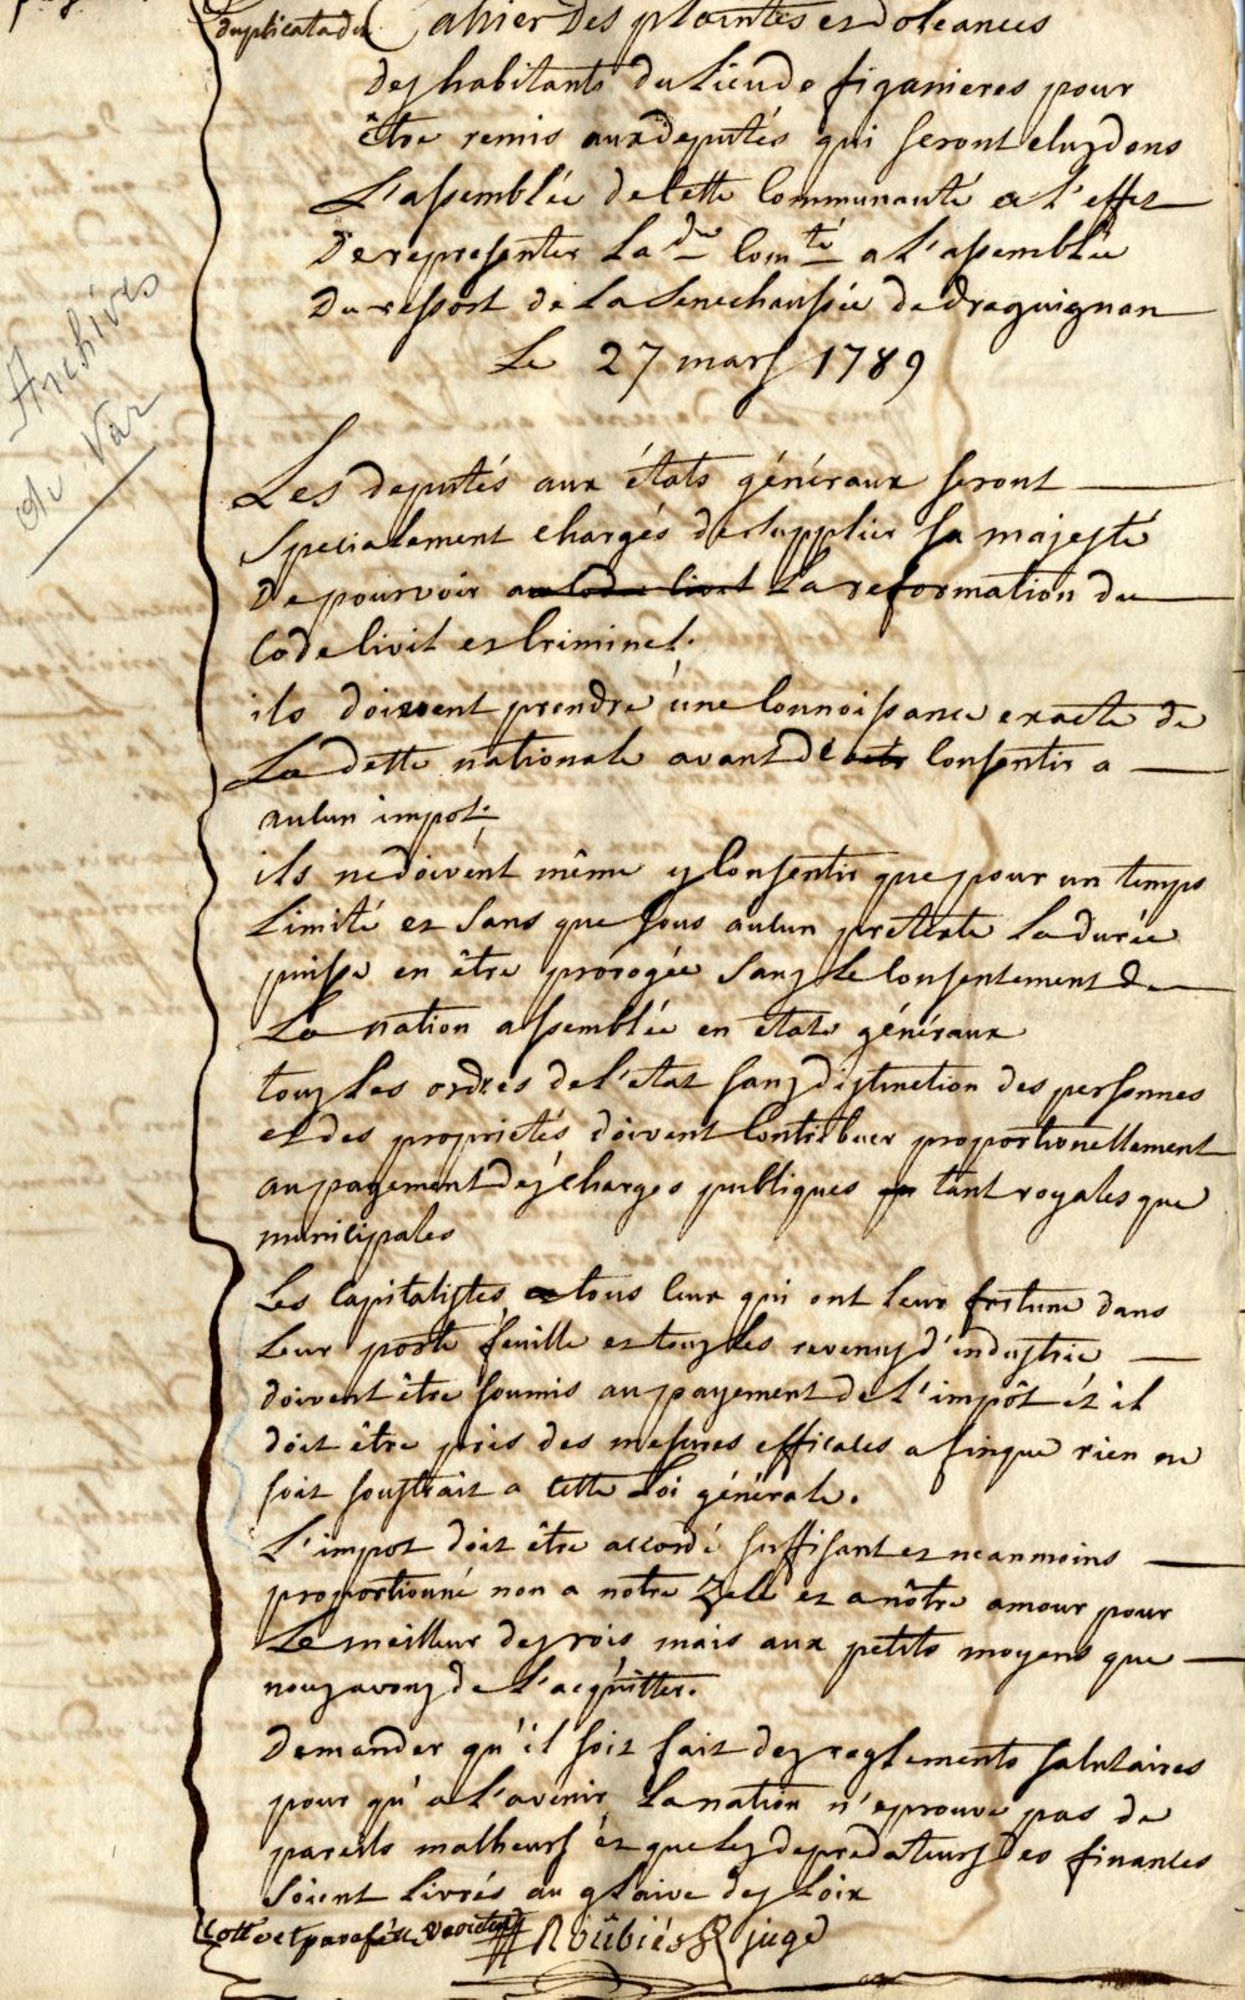 duplicata du Cahier Des plaintes et doleances
des habitants du Lieu de figanieres pour
être remis aux deputés qui seront elus dans
L'assemblée de cette Communauté a L'effet
De representer La dte Comté a L'assemblée
Du ressort de La Senechaussée de draguignan
Le 27 mars 1789
Archives
du Var
Les deputés aux états généraux seront
Specialement chargés de supplier sa majesté
De pourvoir au Code Civil La reformation du
Code Civil et Criminel.
ils doivent prendre une Connoissance exacte de
La dette nationale avant de Consentir a
aucun impot.
ils ne doivent même y Consentir que pour un temps
Limité et Sans que sous aucun pretexte La durée
puisse en être prorogée sans Le Consentement de
La nation assemblée en etats généraux
tous Les ordres de L'etat sans distinction des personnes
et des proprietés doivent Contribuer proportionellement
au payement des charges publiques tant royales que
municipales
Les Capitalistes tous Ceux qui ont Leur fortune dans
Leur porte feuille et tous Les revenus d'industrie
doivent être soumis au payement de L'impôt et il
doit être pris des mesures efficaces afin que rien ne
soit soustrait a Cette Loi générale.
L'impot doit être accordé suffisant et neanmoins
proportionné non a notre Zele et a nôtre amour pour
Le meilleur des rois mais aux petits moyens que
nous avons de L'acquitter.
Demander qu'il soit fait des reglements salutaires
pour qu'a L'avenir La nation n'eprouve pas de
pareils malheurs et que Les depredateurs des finances
Soient Livrés au glaive des Loix
Cotté et paraféé Roûbiés juge